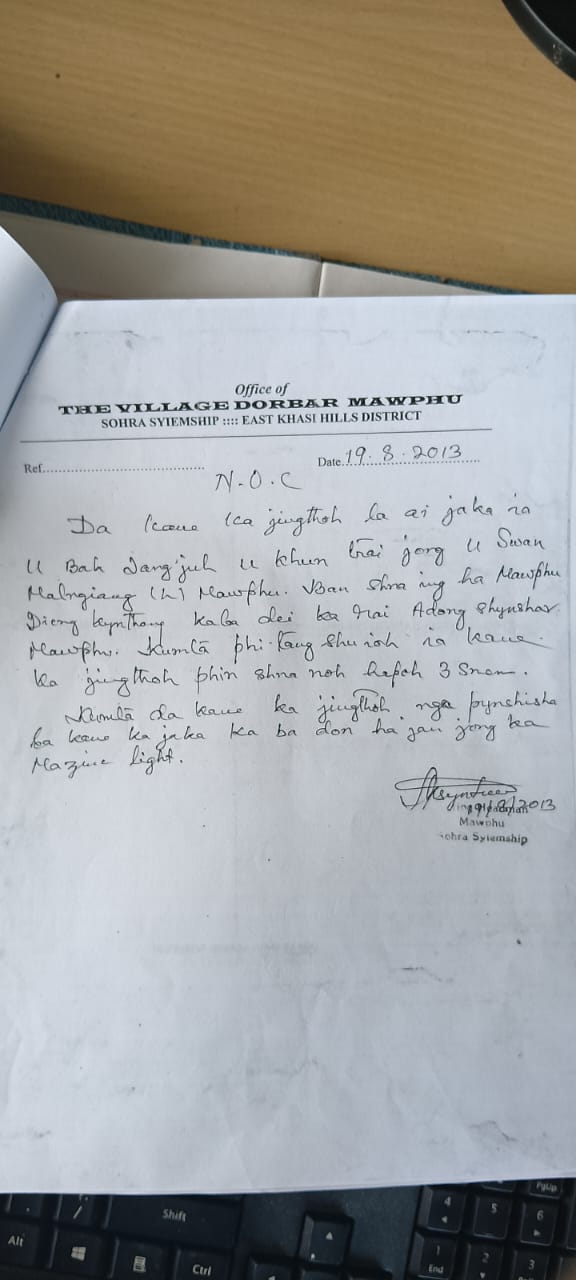 Office of
THE VILLAGE DORBAR MAWPHU
SOHRA SYIEMSHIP :::: EAST KHASI HILLS DISTRICT
Ref..................................... Date 19.8.2013
N.O.C
Da kane ka jingthoh la ai jaka ia
U Bah Jang juh u khun trai jong U Swan
Malngiang (L) Mawphu. Uban shna ing ha Mawphu
Dieng kynthong kaba dei ka trai Adong Shynshar
Mawphu. Kumtā phi. tang shu ioh ia kane
ka jingthoh phin shna noh hapoh 3 Snem.
Kumtā da kane ka jingthoh nga pynshisha
ba kane ka jaka ka ba don ha jan jong ka
Mazine light.
19/8/2013
Mawphu
Sohra Syiemship
Shift
Alt
Ctrl
PgUp
4
5
6
1
End
2
3